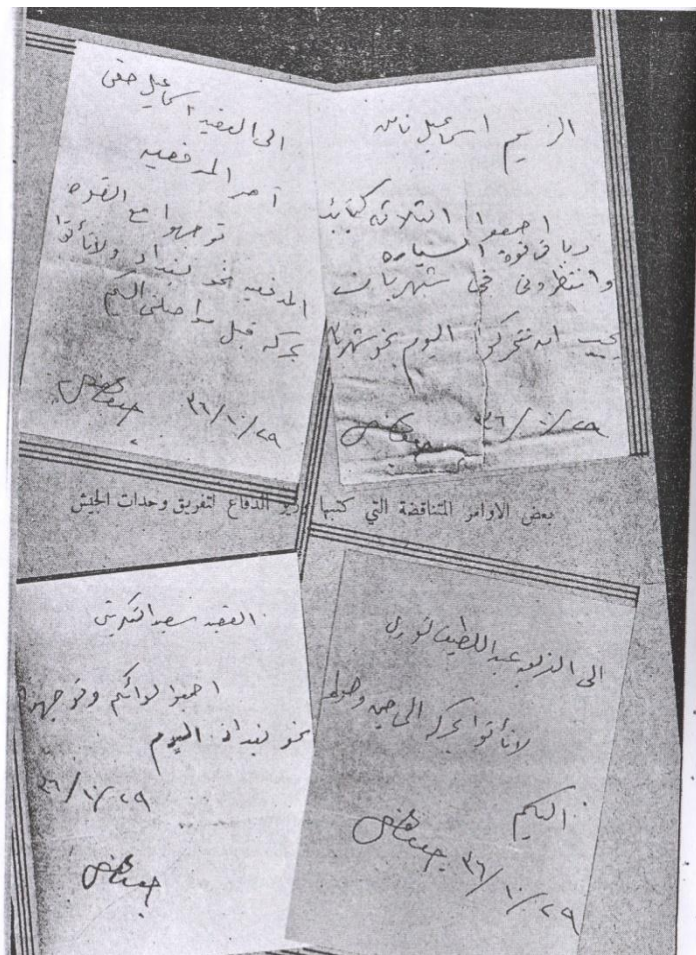 الزعيم اسماعيل نامق
اجمعوا الثلاثة كتائب
وباقي قوة السيارة
وانتظروني في شهربان
يجب ان تتحركوا اليوم نحو شهربان
٢٩/١٠/٣٦
الى العقيد اسماعيل حقي
آمر المدفعيه
توجهوا مع القوه
المدفعيه نحو بغداد ولا تأتوا
بحركه قبل مواصلتي اليكم
٢٩/١٠/٣٦
بعض الاوامر المتناقضة التي كتبها وزير الدفاع لتفريق وحدات الجيش
الى الزعيم عبد اللطيف نوري
لا تأتوا بحركه الى حين وصولي
اليكم
٢٩/١٠/٣٦
العقيد سعيد التكريتي
اجمعوا لوائكم وتوجهوا
نحو بغداد اليوم
٢٩/١٠/٣٦